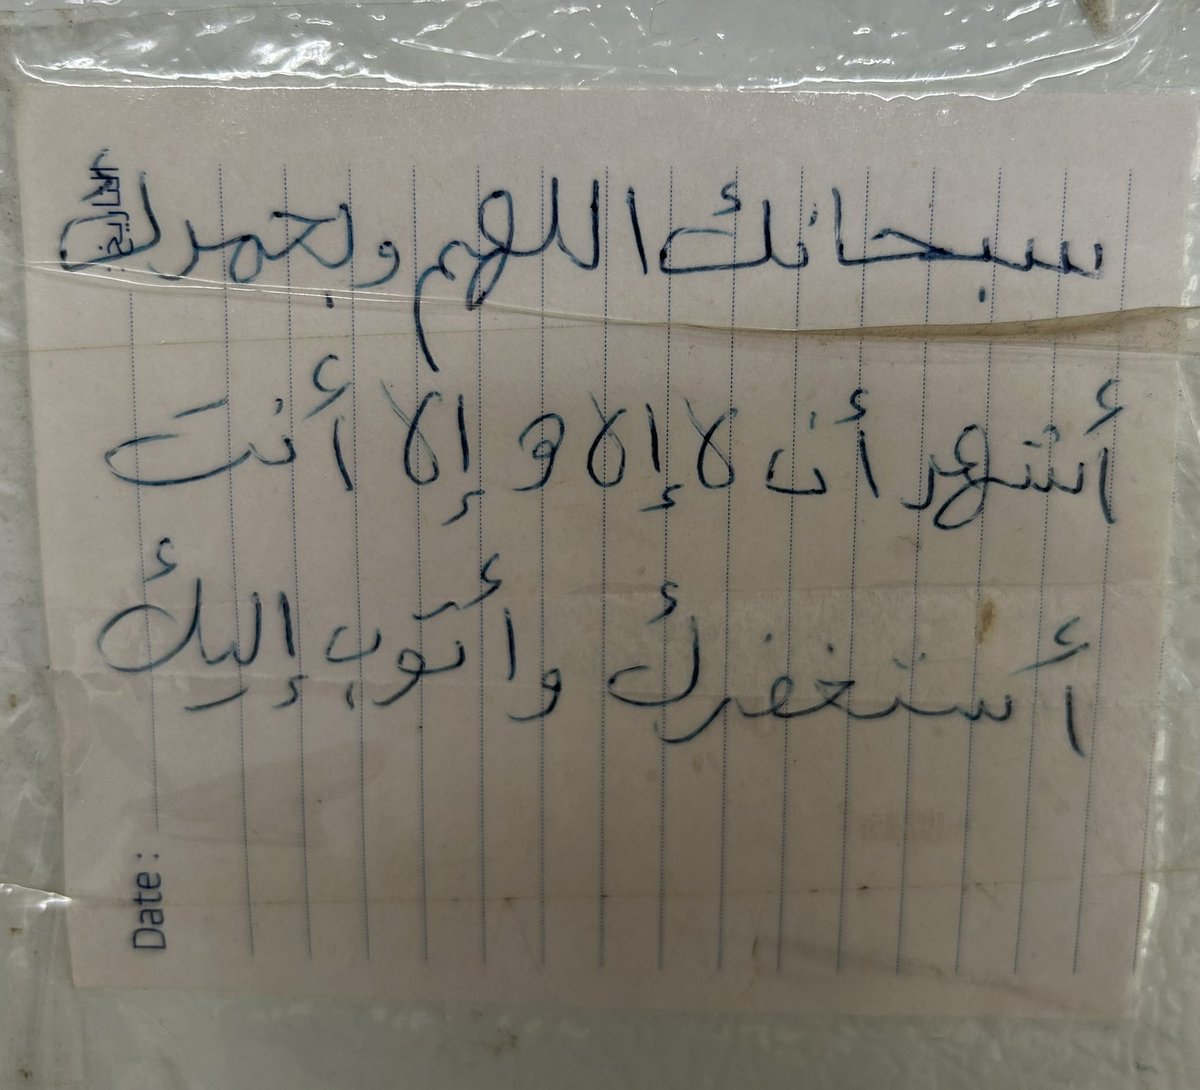 سبحانك اللهم وبحمدك
أشهد أن لا إلا و إلا أنت
أستغفرك وأتوب إليك
Date :